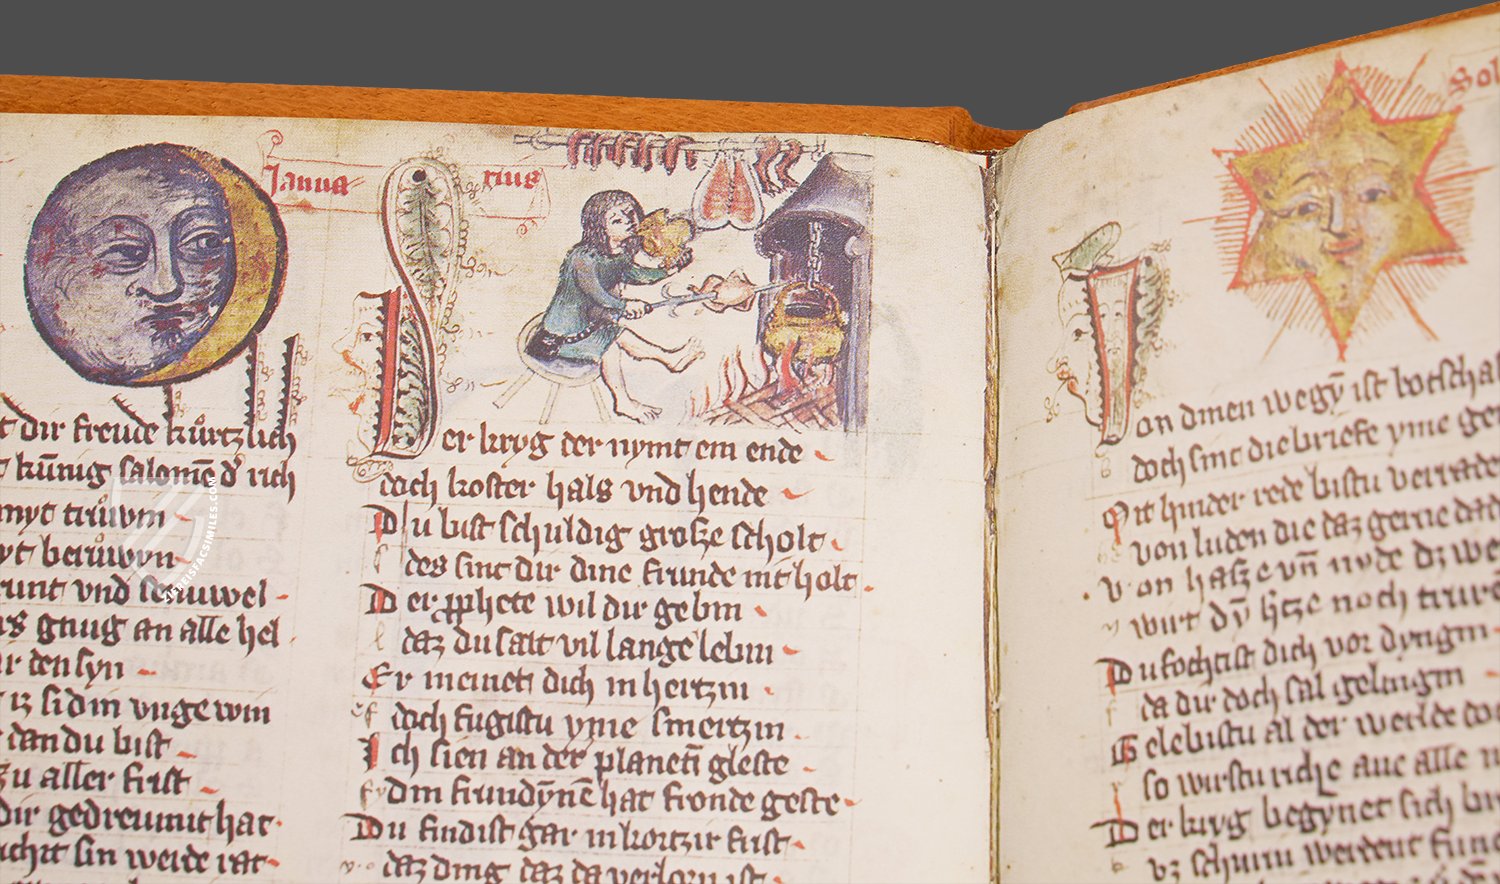 Janua
rius
Sol
t dir freude kůrtzlich
t kũnig salomē d' rich
myt trůwm
yt berůwyn
runt vnd
s gnug an alle hel
r den syn
iz sidin vnge win
dan du bist
zu aller frist
dir gedreiuint hat
sin werde rat
Der kryg der nymt ein ende
doch koster hals vnd hende
Du bist schuldig große scholt
des sint dir dine frunde nit holt
Der pphete wil dir gebin
daz du salt vil lange lebin
Er meinet dich in hertzin
doch fugistu yme smertzin
Ich sien an der planetñ gleste
din frundȳnē hat fronde geste
Du findist gar in kortzir frist
daz ding daz da verlorn ist
Von dinen wegȳ ist botschaf
doch sint die briefe yme ge
Mit hinder rede bistu verrade
von luden die daz gerne dad
von haße vñ nyde dz we
wirt dȳ hitze noch trure
Du fochtist dich vor dyngin
da dir doch sal gelingin
Gelebistu al der werlde do
so wirstu riche ane alle
Der kryg begynet sich
vz schurn werdent fun
TELEISFACSIMILES.COM